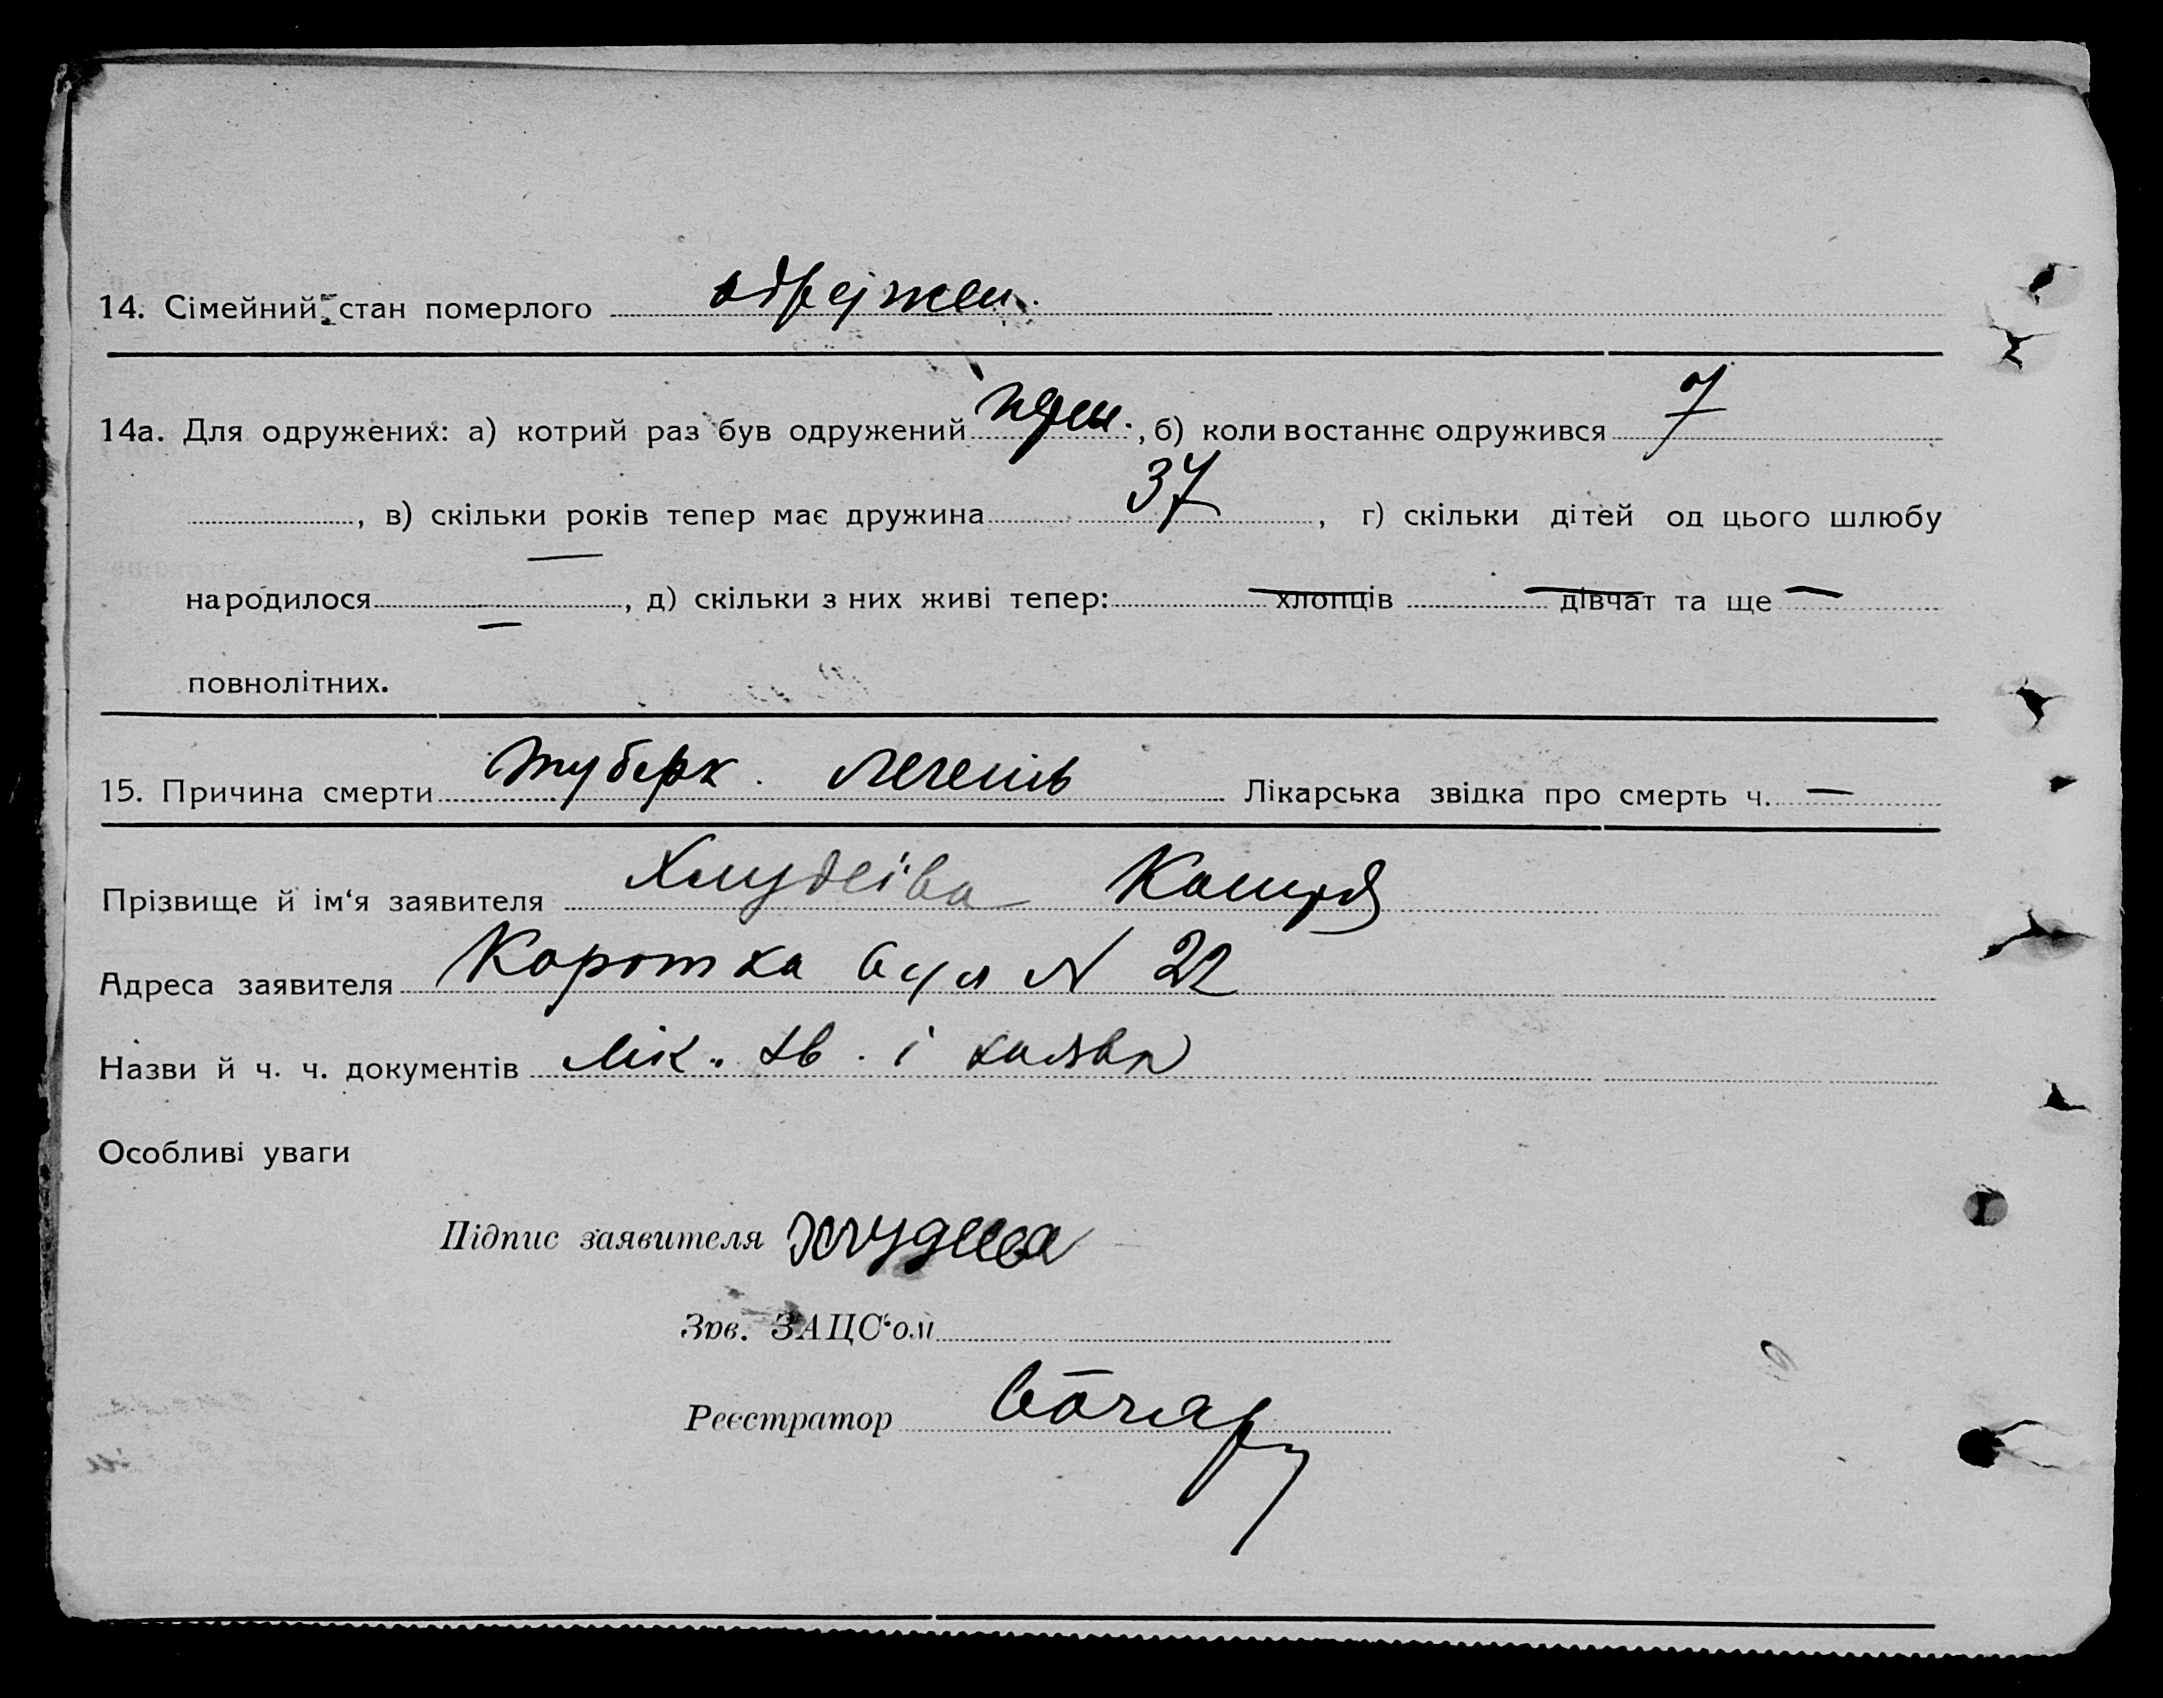 14. Сімейний стан померлого одружен.
14а. Для одружених: а) котрий раз був одружений перш., б) коли востаннє одружився 7
, в) скільки років тепер має дружина 37, г) скільки дітей од цього шлюбу
народилося —, д) скільки з них живі тепер: — хлопців — дівчат та ще —
повнолітних.
15. Причина смерти туберк. легенів Лікарська звідка про смерть ч. —
Прізвище й ім‘я заявителя Хлудєіва
Адреса заявителя Коротка вул N 22
Назви й ч. ч. документів лік. зв. і заява
Особливі уваги
Підпис заявителя
Зав. ЗАЦС‘ом
Реєстратор